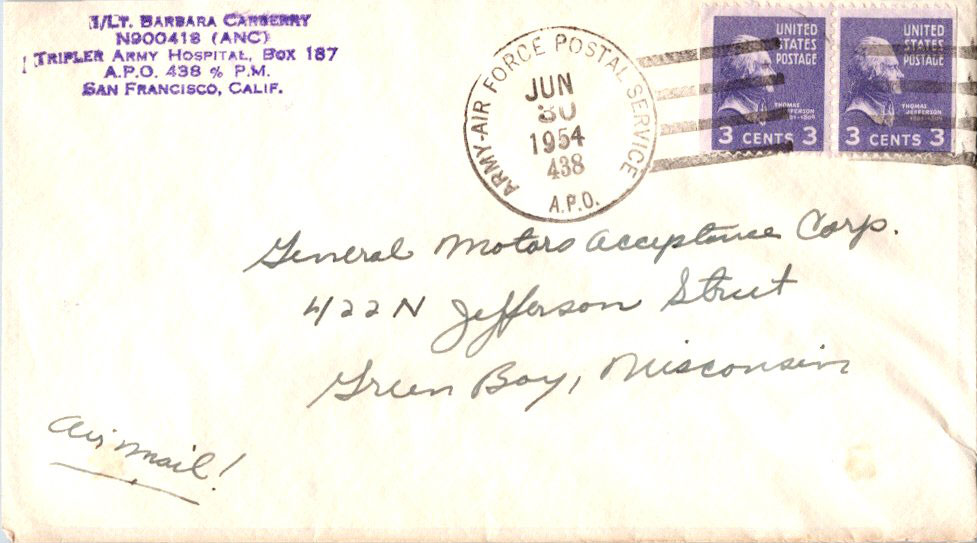 1/LT. BARBARA CARBERRY
N900418 (ANC)
TRIPLER ARMY HOSPITAL, BOX 187
A.P.O. 438 % P.M.
SAN FRANCISCO, CALIF.
ARMY-AIR FORCE POSTAL SERVICE
JUN
30
1954
438
A.P.O.
UNITED
STATES
POSTAGE
THOMAS
JEFFERSON
3 CENTS 3
UNITED
STATES
POSTAGE
THOMAS
JEFFERSON
3 CENTS 3
General Motors Acceptance Corp.
422 N Jefferson Street
Green Bay, Wisconsin
Air mail!